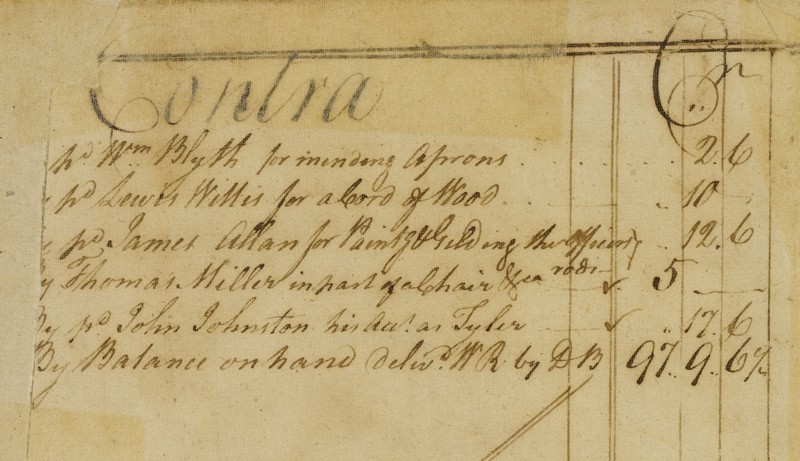 Contra Cr
pd Wm Blyth for mending Aprons . . . . 2. 6
pd Lewis Willis for a Cord of Wood . . . . 10 —
pd James Allan for Paintg & Gilding the officers .. 12. 6
rods —
y Thomas Miller in part of a Chair &ca — 5 —
By pd John Johnston his Acct. as Tyler — .. 17. 6
By Balance on hand delivd. W R by D B 97.. 9.. 6½